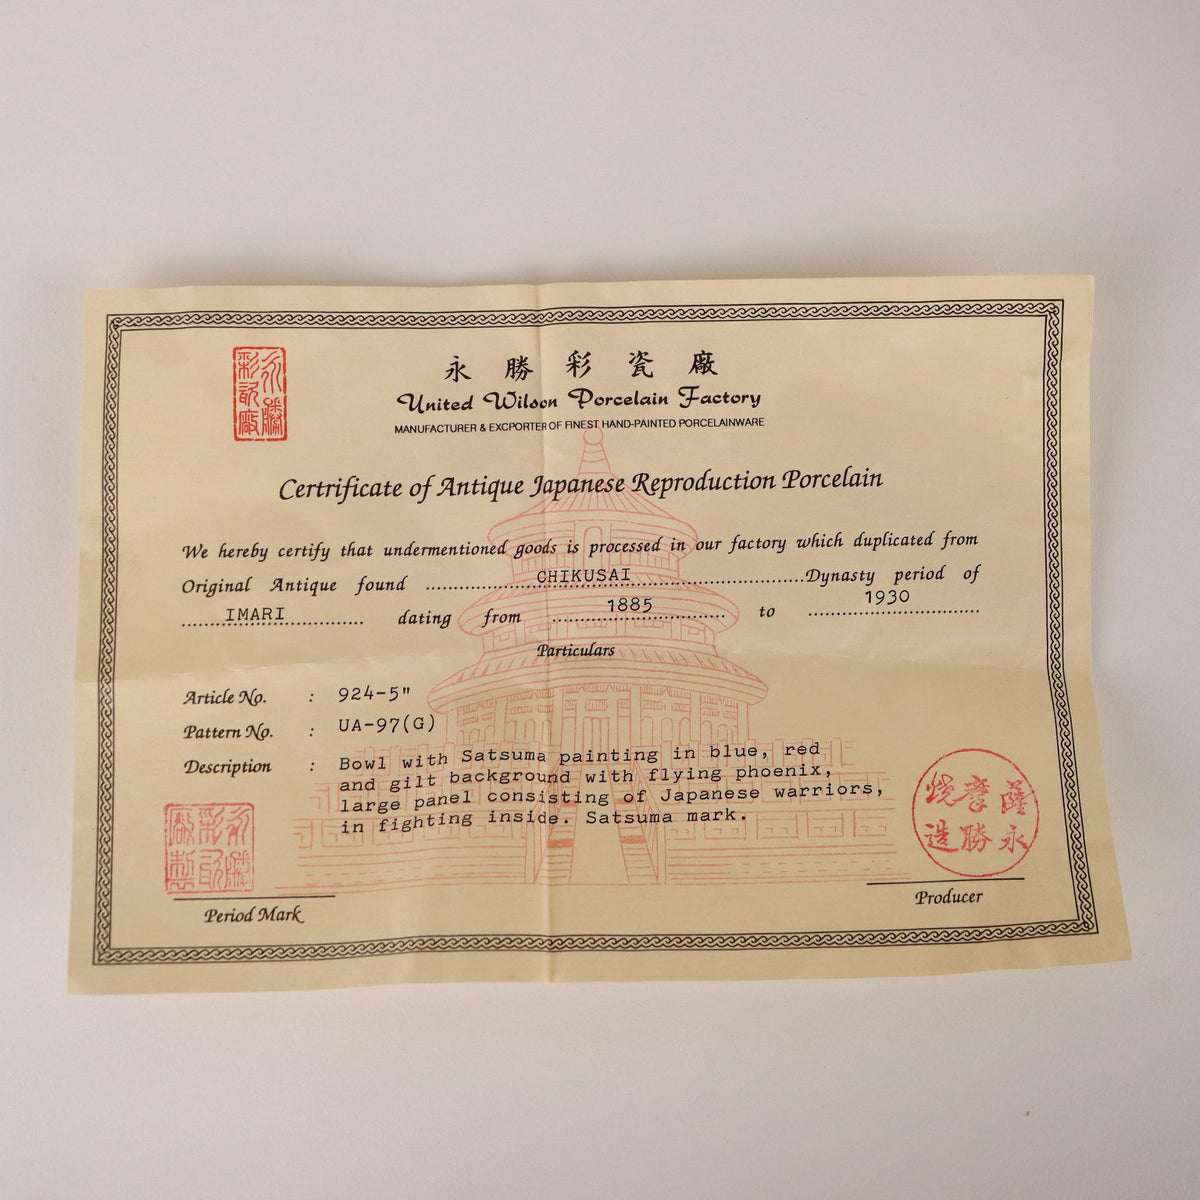 永勝彩瓷廠
United Wilson Porcelain Factory
MANUFACTURER & EXCPORTER OF FINEST HAND-PAINTED PORCELAINWARE
Certrificate of Antique Japanese Reproduction Porcelain
We hereby certify that undermentioned goods is processed in our factory which duplicated from
Original Antique found ........CHIKUSAI........Dynasty period of
....IMARI.... dating from ....1885.... to ....1930....
Particulars
Article No. : 924-5"
Pattern No. : UA-97(G)
Description : Bowl with Satsuma painting in blue, red
and gilt background with flying phoenix,
large panel consisting of Japanese warriors,
in fighting inside. Satsuma mark.
薩永
摩勝
燒造
Period Mark
Producer